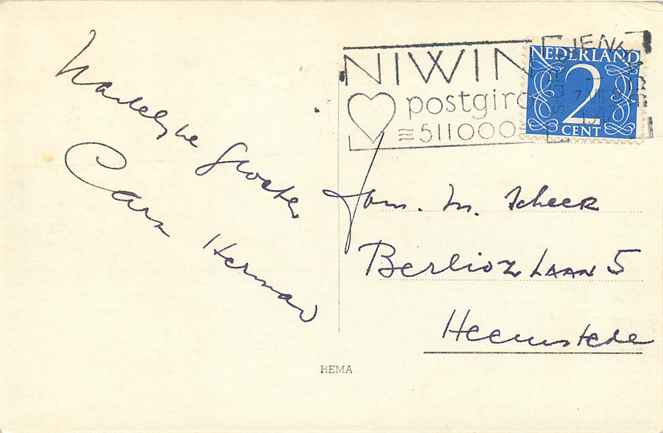 Hartelijke Groeten
Cara Herman
NIWIN
postgiro
511000
NEDERLAND
2
CENT
Fam. M. Scheer
Berlioz Laan 5
Heemstede
HEMA